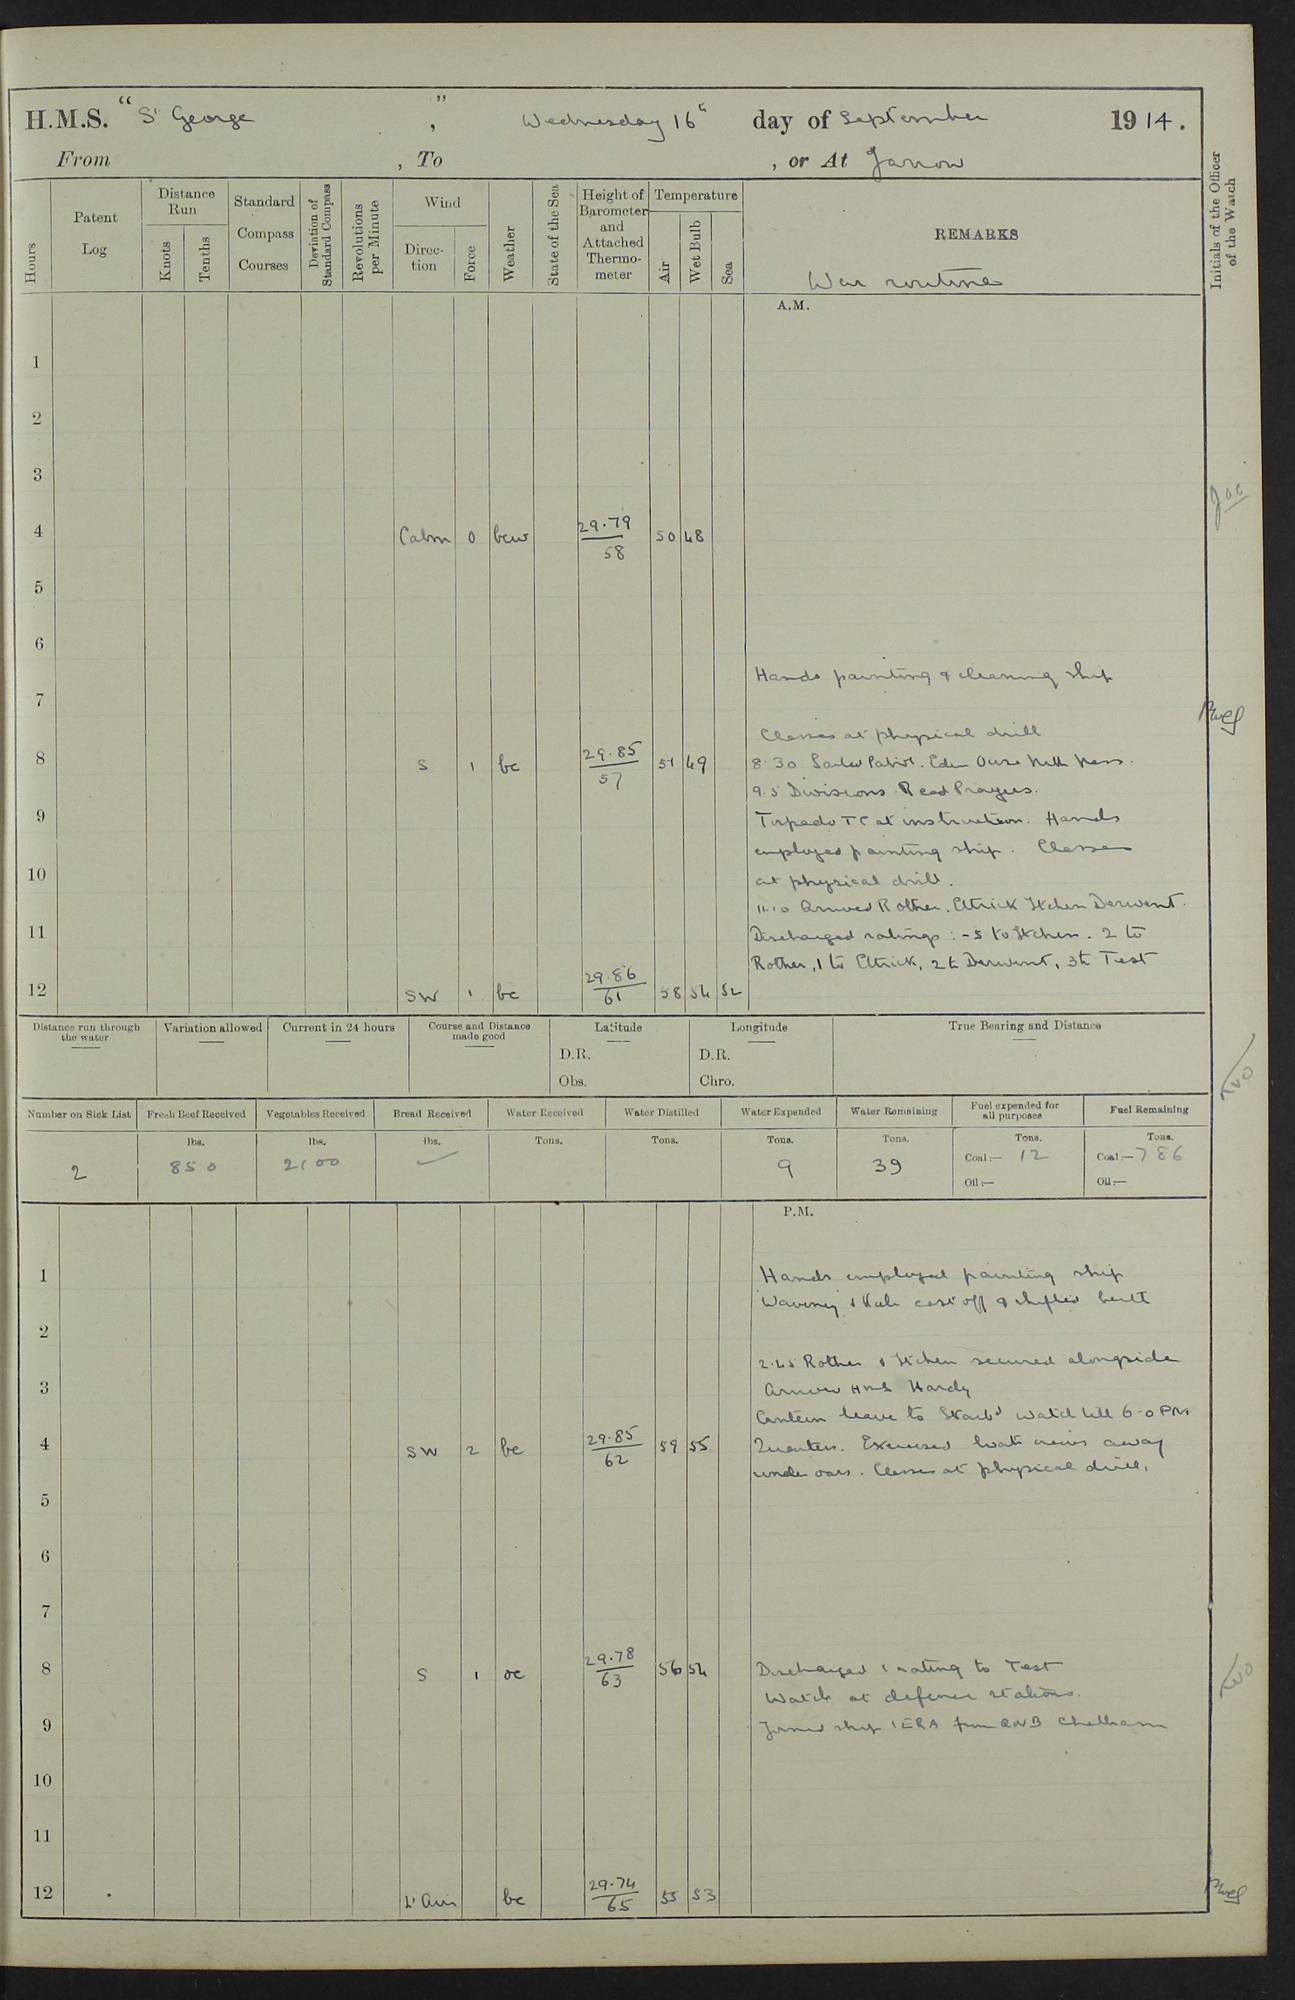 H.M.S. "St George", Wednesday 16th day of September 1914.
From , To , or At Jarrow
Hours
Patent Log
Distance Run
Knots
Tenths
Standard Compass Courses
Deviation of Standard Compass
Revolutions per Minute
Wind
Direction
Force
Weather
State of the Sea
Height of Barometer and Attached Thermometer
Temperature
Air
Wet Bulb
Sea
REMARKS
Initials of the Officer of the Watch
War routine
A.M.
1
2
3
4 Calm 0 bcw 29.79 58 50 48
5
6
Hands painting & cleaning ship
7
Classes at physical drill
8 S 1 bc 29.85 57 51 49
8.30 Sailed Patrol. Eden Ouse
9.5 Divisions. Read Prayers.
9
Torpedo TC at instruction. Hands
employed painting ship. Classes
10
at physical drill.
11.10 Arrived Rother. Ettrick Itchen Derwent.
11
Discharged ratings :- 5 to Itchen. 2 to
Rother, 1 to Ettrick, 2 to Derwent, 3 to Test
12 SW 1 bc 29.86 61 58 54 52
Distance run through the water
Variation allowed
Current in 24 hours
Course and Distance made good
Latitude
D.R.
Obs.
Longitude
D.R.
Chro.
True Bearing and Distance
Number on Sick List
Fresh Beef Received
Vegetables Received
Bread Received
Water Received
Water Distilled
Water Expended
Water Remaining
Fuel expended for all purposes
Fuel Remaining
lbs. lbs. lbs. Tons. Tons. Tons. Tons. Tons. Tons.
2 850 2100 9 39 Coal:— 12 Coal:— 786
Oil:— Oil:—
P.M.
1 Hands employed painting ship
Waveney & cast off & shifted berth
2
2.45 Rother & Itchen secured alongside
3 Arrived HMS Hardy
Canteen leave to Starbd watch till 6-0 PM
4 SW 2 bc 29.85 62 59 55 Quarters. Exercised boats crews away
under oars. Classes at physical drill.
5
6
7
8 S 1 oc 29.78 63 56 54 Discharged 1 rating to Test
Watch at defence stations.
9 Joined ship 1 ERA from RNB Chatham
10
11
12 Lt Airs bc 29.74 65 55 53